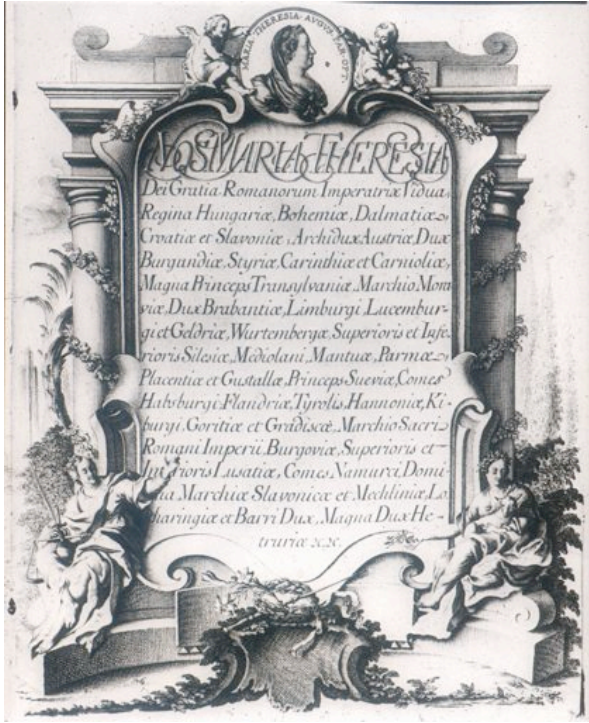 MARIA THERESIA AUGUS. PAR. OPT.
NOS MARIA THERESIA
Dei Gratia Romanorum Imperatrix Vidua,
Regina Hungariæ, Bohemiæ, Dalmatiæ,
Croatiæ et Slavoniæ, Archidux Austriæ, Dux
Burgundiæ, Styriæ, Carinthiæ et Carnioliæ,
Magna Princeps Transylvaniæ, Marchio Mora
viæ, Dux Brabantiæ, Limburgi, Lucembur-
gi et Geldriæ, Wurtembergæ, Superioris et Infe-
rioris Silesiæ, Mediolani, Mantuæ, Parmæ,
Placentiæ et Gustallæ, Princeps Sueviæ, Comes
Habsburgi, Flandriæ, Tyrolis, Hannoniæ, Ki-
burgi, Goritiæ et Gradiscæ, Marchio Sacri
Romani Imperii, Burgoviæ, Superioris et
Inferioris Lusatiæ, Comes Namurci, Domi
na Marchiæ Slavonicæ et Mechliniæ, Lo
tharingiæ et Barri Dux, Magna Dux He-
truriæ &c. &c.